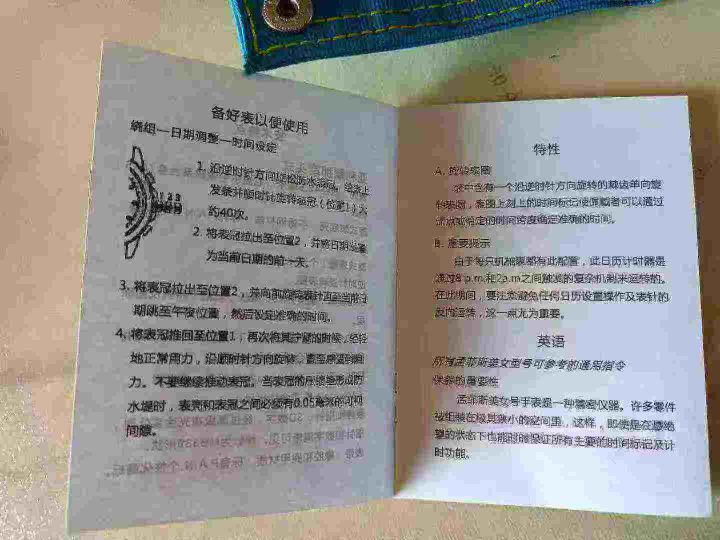 备好表以便使用
绕组—日期调整—时间设定
1. 沿逆时针方向
发条并顺时针旋转表冠（位置1）大
约40次。
2. 将表冠拉出至位置2，并将日期
为当前日期的前一天。
3. 将表冠拉出至位置2，并向前旋转表针直至当前日
期跳至午夜位置，然后设定准确的时间。
4. 将表冠推回至位置1，再次将其拧紧的时候，轻轻
地正常用力，沿顺时针方向旋转，直至感到阻
力。不要继续推动表冠。当表冠的压锁垫形成防
水堤时，表壳和表冠之间必须有0.05毫米的可视
间隙。
特性
A. 旋转表圈
有一个沿逆时针方向旋转的棘齿单向旋
转表圈，表圈上刻上的时间标记使佩戴者可以通过
给定的时间跨度确定准确的时间。
B. 重要提示
由于每只机械表都有此配置，此日历计时器是
通过8 p.m.和2a.m之间触发的复杂机制来运转的。
在此期间，要注意避免任何日历设置操作及表针的
反向运转，这一点尤为重要。
英语
所有孟菲斯美女型号可参考的通用指令
保养的重要性
孟菲斯美女号手表是一种精密仪器。许多零件
被组装在极其狭小的空间里，这样，即使是在最绝
望的状态下也能时时保证所有主要的时间标记及计
时功能。